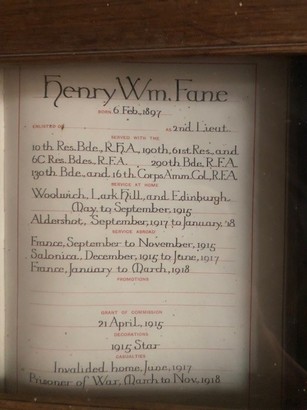 Henry Wm. Fane
BORN 6 Feb., 1897
ENLISTED AS AS 2nd. Lieut.
SERVED WITH THE
10th Res. Bde., R.H.A., 190th, 61st. Res., and
6C Res. Bdes., R.F.A. 290th Bde., R.F.A.
130th Bde., and 16th Corps Amm. Col., R.F.A.
SERVICE AT HOME
Woolwich, Lark Hill, and Edinburgh,
May to September, 1915
Aldershot, September, 1917 to January, '18
SERVICE ABROAD
France, September to November, 1915
Salonica, December, 1915 to June, 1917
France, January to March, 1918
PROMOTIONS
GRANT OF COMMISSION
21 April, 1915
DECORATIONS
1915 Star
CASUALTIES
Invalided home, June, 1917
Prisoner of War, March to Nov., 1918